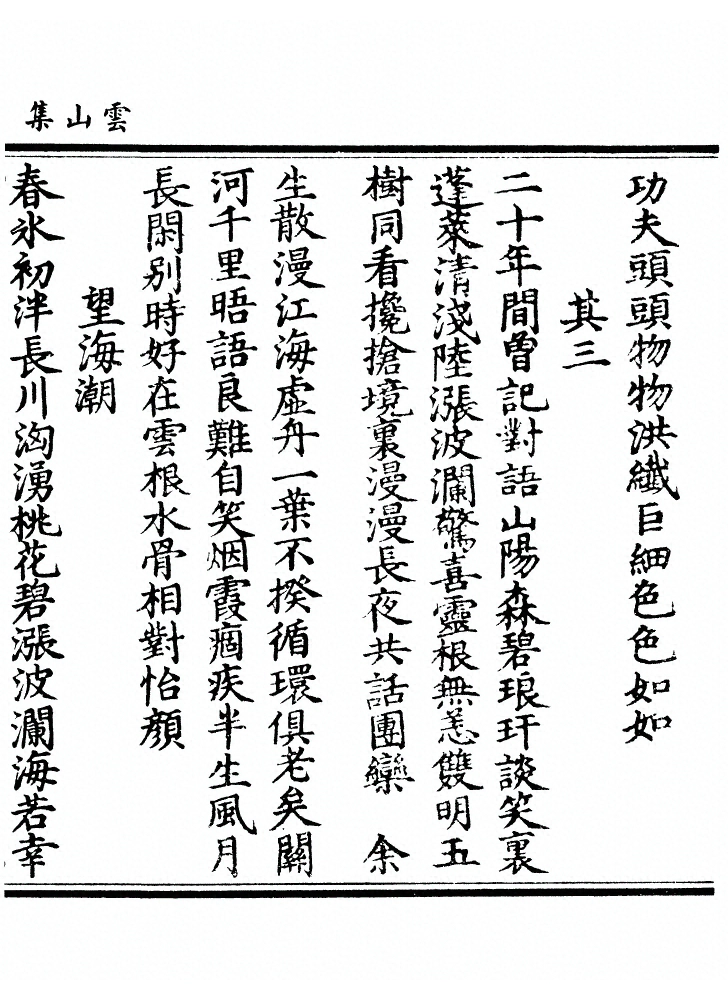 雲山集
功夫頭頭物物洪纖巨細色色如如
其三
二十年間曽記對語山陽森碧琅玕談笑裏
蓬萊清淺陸漲波瀾驚喜靈根無恙雙明五
樹同看攙搶境裏漫漫長夜共話團欒　余
生散漫江海虛舟一葉不揆循環俱老矣關
河千里晤語良難自笑烟霞痼疾半生風月
長閑别時好在雲根水骨相對怡顔
望海潮
春氷初泮長川洶湧桃花碧漲波瀾海若幸